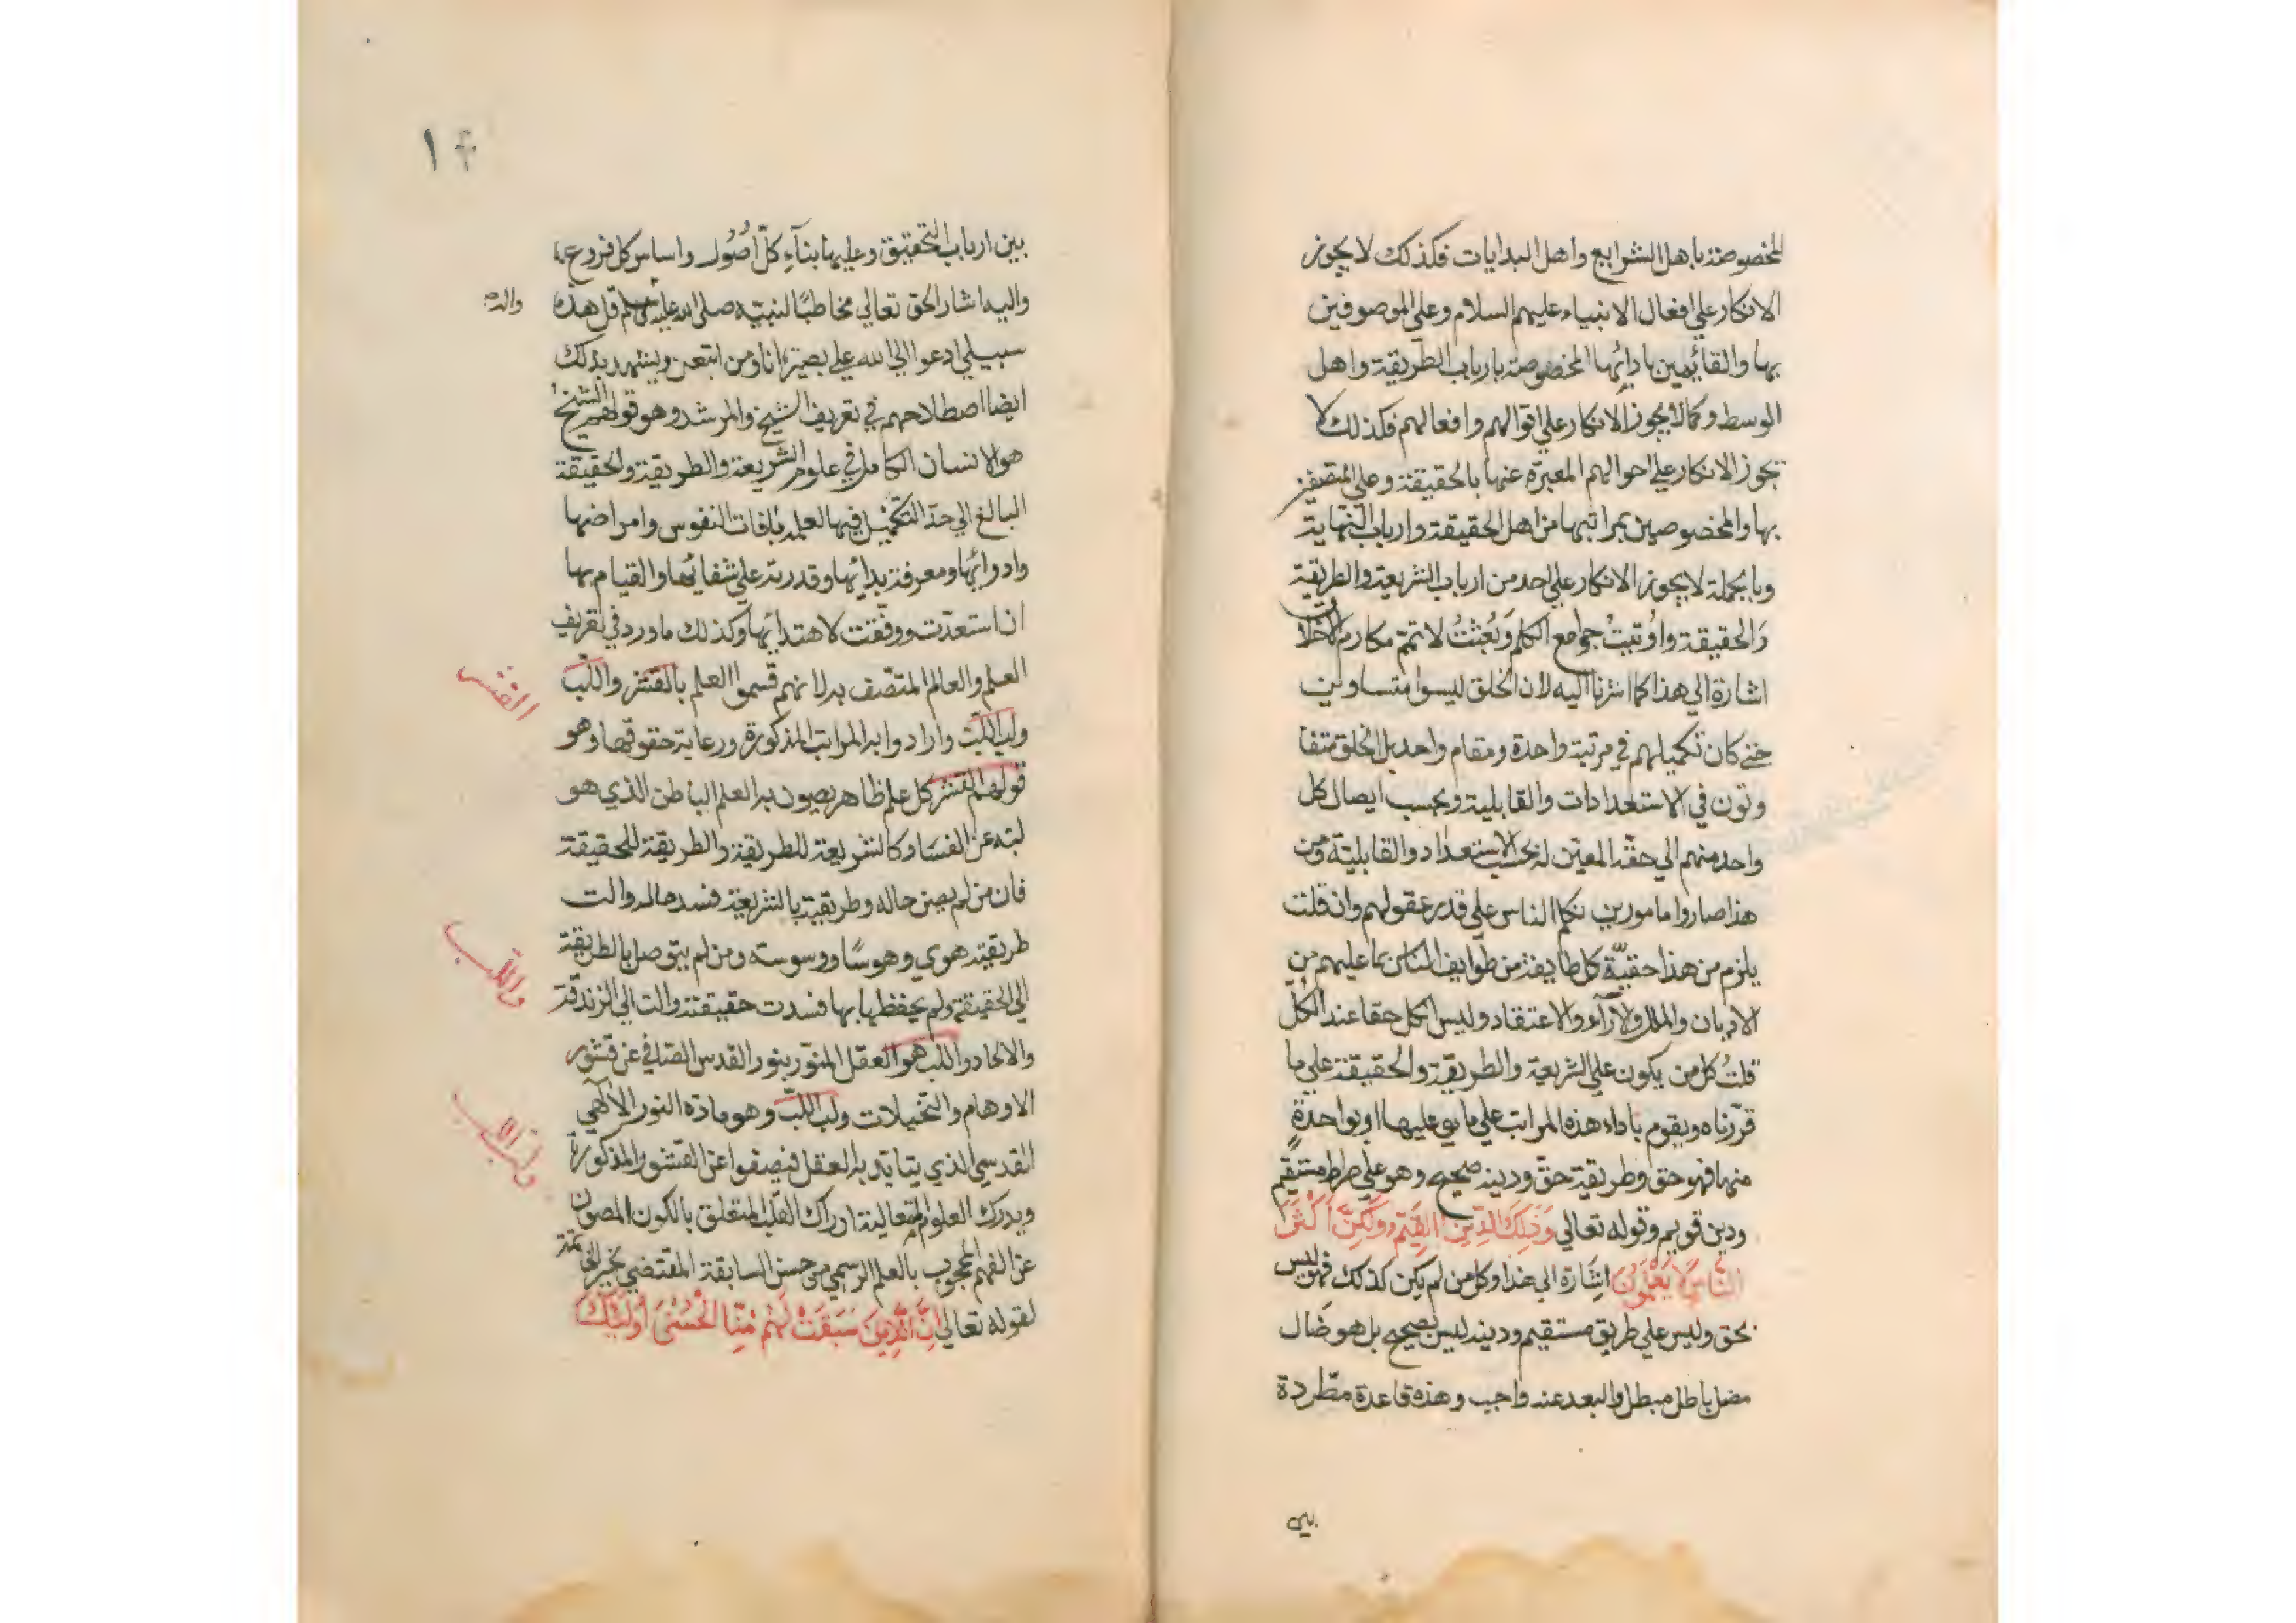 المخصوصة باهل الشرايع واهل البدايات فكذلك لا يجوز
الانكار علي افعال الانبياء عليهم السلام وعلي الموصوفين
بها والقائمين بادائها المخصوصة بارباب الطريقة واهل
الوسط وكما لا يجوز الانكار علي اقوالهم وافعالهم فكذلك لا
تجوز الانكار علي احوالهم المعبرة عنها بالحقيقة وعلي المتصفين
بها والمخصوصين بمراتبها من اهل الحقيقة وارباب النهاية
وبالجملة لا يجوز الانكار علي احد من ارباب الشريعة والطريقة
والحقيقة واُوتيتُ جوامع الكلم وَبُعثتُ لاتمّم مكارم الاخلاق
اشارة الي هذا كما اشرنا اليه لان الخلق ليسوا متساوين
حتي كان تكميلهم في مرتبة واحدة ومقام واحد بل الخلق متفا
وتون في الاستعدادات والقابلية وبحسب ايصال كل
واحد منهم الي حقّه المعيّن له بحسب الاستعداد والقابليّة ومن
هذا صاروا مامورين نكلم الناس علي قدر عقولهم وان قلت
يلزم من هذا حقيّة كل طايفة من طوايف الناس بما عليهم من
الاديان والملل والآرآء والاعتقاد وليس الكل حقا عند الكلّ
قلتُ كل من يكون علي الشريعة والطريقة والحقيقة علي ما
قرّرناه ويقوم باداء هذه المراتب علي ما هي عليها او بواحدةٍ
منها فهو حق وطريقته حقّ ودينه صحيح وهو علي صراط مستقيم
ودين قويم وقوله تعالي وَذَٰلِكَ الدِّينُ القَيِّمُ وَلَٰكِنَّ اَكْثَرَ
النَّاسِ لَا يَعْلَمُونَ اشارة الي هذا وكل من لم يكن كذلك فهو ليس
بحق وليس علي طريق مستقيم ودينه ليس بصحيح بل هو ضال
مضل باطل مبطل والبعد عنه واجب وهذه قاعدة مطّردة
بين
١٤
بين ارباب التحقيق وعليها بنآء كلّ اُصُول واساس كل فروع
واليه اشار الحق تعالي مخاطبًا لنبيّه صلى الله عليه وسلم قل هذه
سبيلي ادعوا الي الله علي بصيرة انا ومن اتبعن ويشهد بذلك
ايضا اصطلاحهم في تعريف الشيخ والمرشد وهو قولهم الشيخ
هو الانسان الكامل في علوم الشريعة والطريقة والحقيقة
البالغ الي حدّ التكميل فيها لعلمه بآفات النفوس وامراضها
وادوائها ومعرفته بدائها وقدرته علي شفائها والقيام بها
ان استعدّت ووفّقت لاهتدائها وكذلك ما ورد في تعريف
العلم والعالم المتّصف به لانهم قسموا العلم بالقشر واللّب
ولبّ اللّبّ وارادوا به المراتب المذكورة ورعاية حقوقها وهو
قولهم القشر كل علم ظاهر يصون به العلم الباطن الذي هو
لبّه عن الفساد كالشريعة للطريقة والطريقة للحقيقة
فان من لم يصن حاله وطريقته بالشريعة فسد حاله والت
طريقته هوي وهوسًا ووسوسته ومن لم يتوصل بالطريقة
الي الحقيقة ولم يحفظها بها فسدت حقيقته والت الي الزندقة
والالحاد واللب هو العقل المنوّر بنور القدس الصّافي عن قشور
الاوهام والتخيلات ولب اللبّ وهو مادة النور الآلهي
القدسي الذي يتايّد به العقل فيصفوا عن القشور المذكورة
ويدرك العلوم المتعالية ادراك القلب المتعلق بالكون المصون
عن الفهم المحجوب بالعلم الرسمي من حسن السابقة المقتضي بخير الخاتمة
لقوله تعالي اِنَّ الَّذِينَ سَبَقَتْ لَهُمْ مِنَّا الْحُسْنَى أُولَٰئِكَ
القشر
واللب
ولب اللب